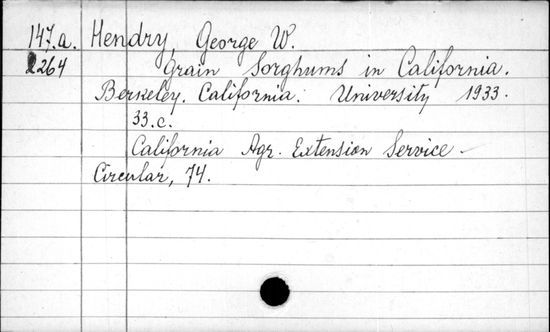 147.a. Hendry, George W.
2264 Grain Sorghums in California.
Berkeley. California. University 1933.
33.c.
California Agr. Extension Service -
Circular, 74.